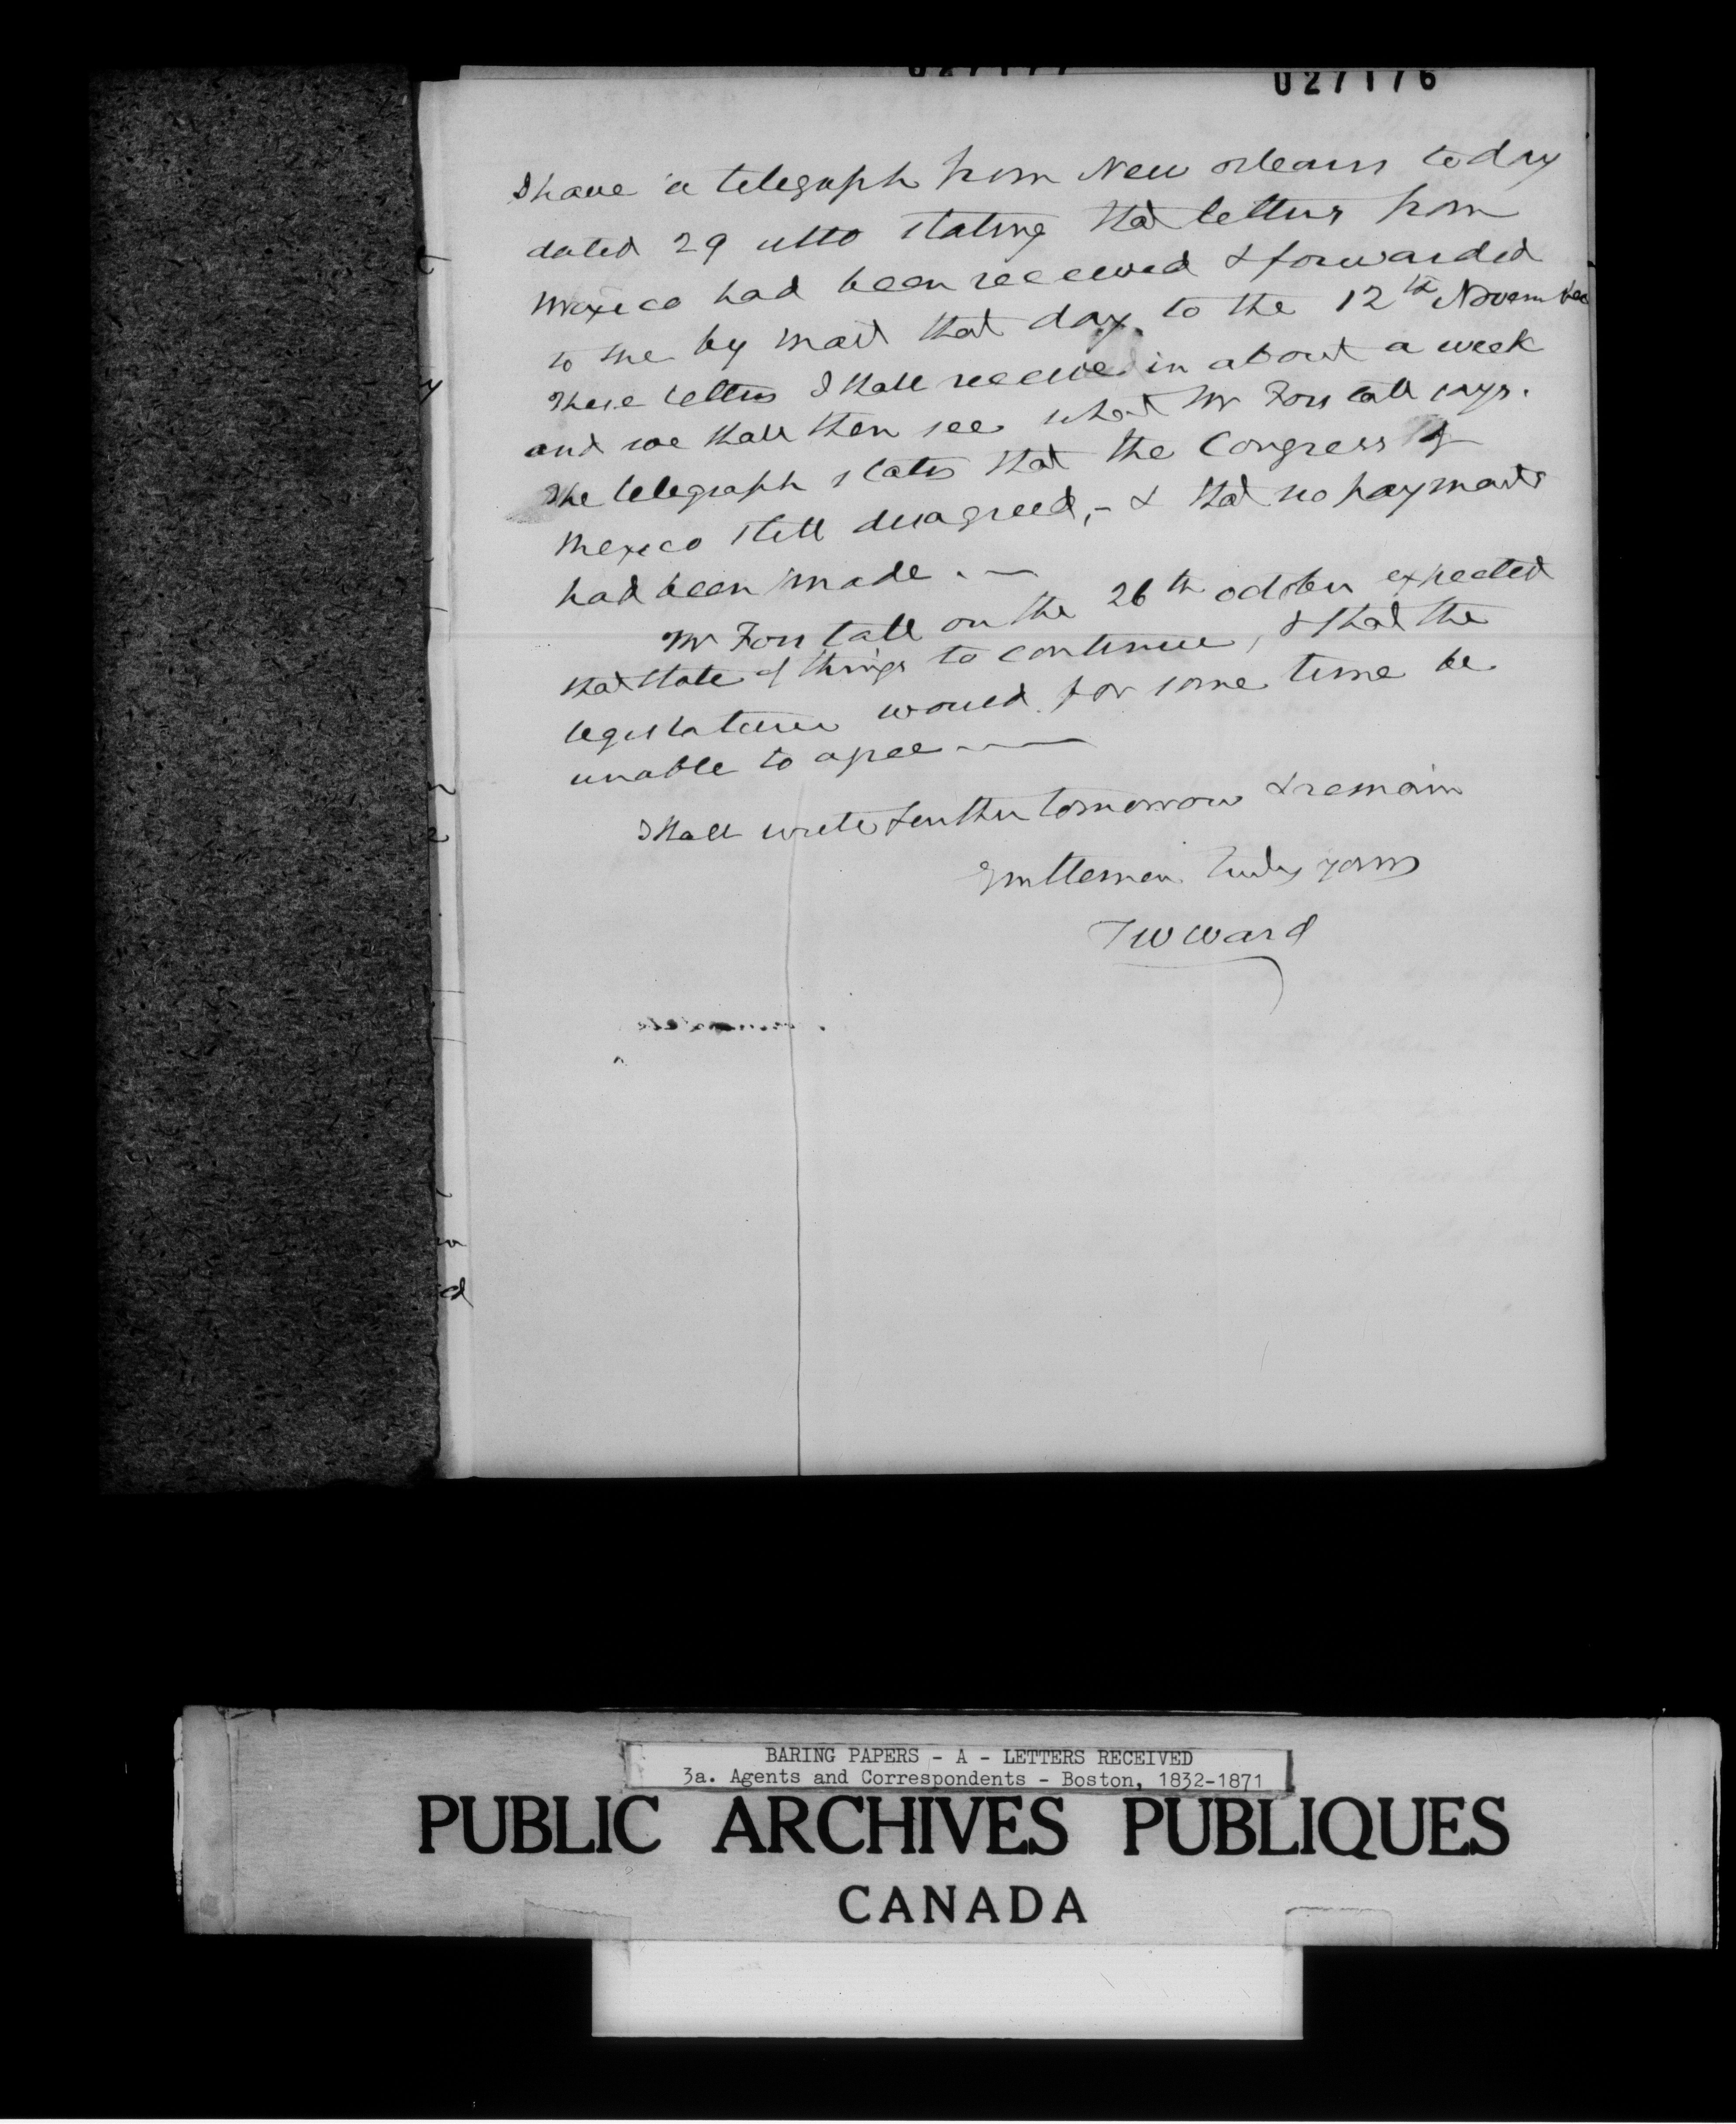 027177
027176
I have a telegraph from New Orleans today
dated 29 ulto stating that letters from
Mexico had been received & forwarded
to me by mail that day, to the 12th November
These letters I shall receive in about a week
and we shall then see what Mr Forstall says.
The telegraph states that the Congress of
Mexico still disagreed, - & that no payments
had been made. —
Mr Forstall on the 26th October expected
that state of things to continue, & that the
legislature would for some time be
unable to agree —
Shall write further tomorrow & remain
Gentlemen Truly yours
T W Ward
BARING PAPERS - A - LETTERS RECEIVED
3a. Agents and Correspondents - Boston, 1832-1871
PUBLIC ARCHIVES PUBLIQUES
CANADA